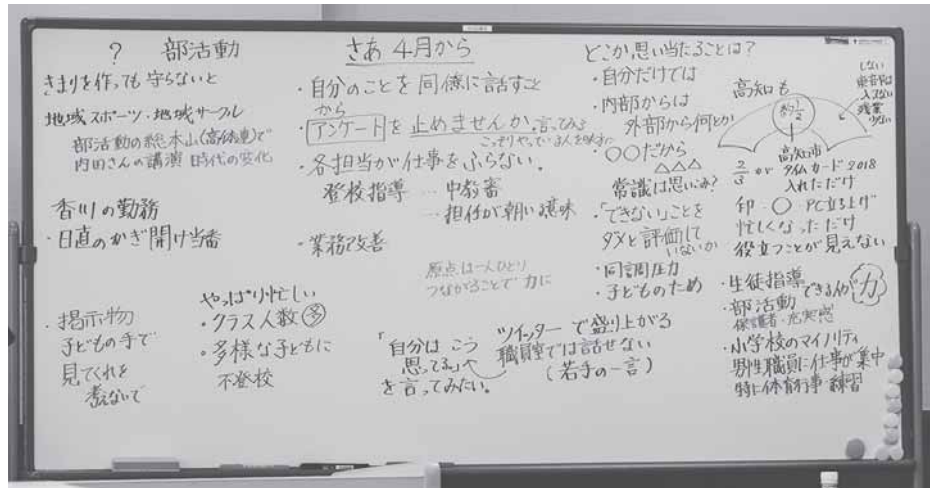 ? 部活動
きまりを作っても守らないと
地域スポーツ・地域サークル
部活動の総本山(高体連)で
内田さんの講演 時代の変化
香川の勤務
・日直のかぎ開け当番
・掲示物
子どもの手で
見てくれを
考えないで
やっぱり忙しい
・クラス人数 多
・多様な子どもに
不登校
さあ 4月から
・自分のことを同僚に話すこと
から
・アンケートを止めませんか。言ってみる
こっそりやっている人を味方に
・各担当が仕事をふらない。
登校指導 … 中教審
… 担任が朝いる意味
・業務改善
原点は一人ひとり
つながることで 力に
「自分は こう
思ってる」
を言ってみたい。
ツイッター で盛り上がる
職員室では話せない
(若手の一言)
どこか思い当たることは?
・自分だけでは
・内部からは
外部から何とか
・○○だから
△△△
常識は思いこみ?
・「できない」ことを
ダメと評価して
いないか
・同調圧力
・子どものため
高知も
約1/2
しない
入力ない
残業
少ない
高知市
2/3が タイムカード 2018
入れただけ
印・○ PC立ち上げ
忙しくなっただけ
役立つことが見えない
・生徒指導
・部活動 できる人が 力
保護者・充実感
・小学校のマイノリティ
男性職員に仕事が集中
特に体育行事・練習